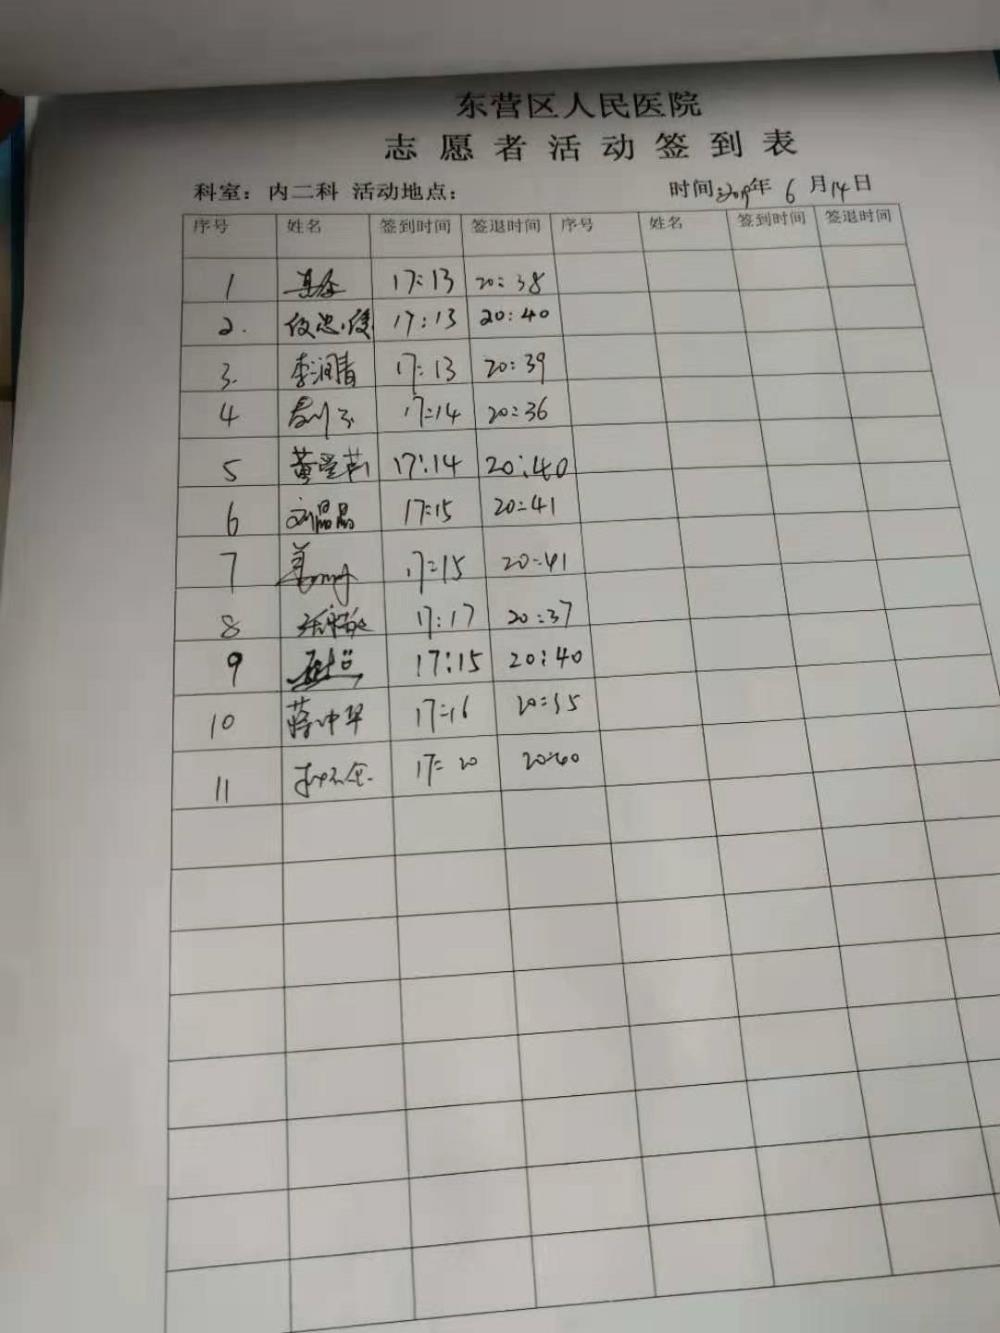 东营区人民医院
志愿者活动签到表
科室：内二科 活动地点： 时间：2019年 6月14日
序号 姓名 签到时间 签退时间 序号 姓名 签到时间 签退时间
1 17:13 20:38
2. 17:13 20:40
3. 李润青 17:13 20:39
4 17:14 20:36
5 17:14 20:40
6 刘晶晶 17:15 20:41
7 17:15 20:41
8 17:17 20:37
9 17:15 20:40
10 17:16 20:35
11 17:20 20:40